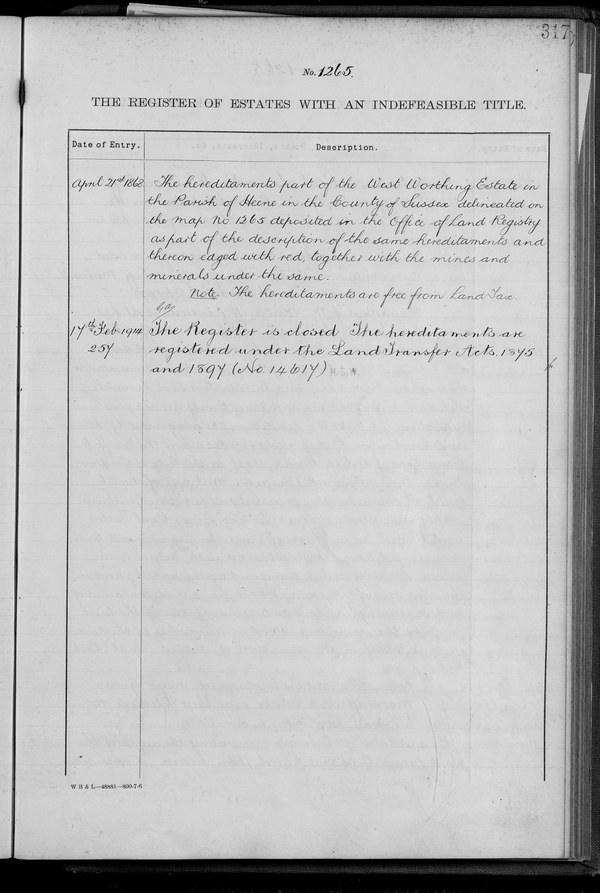 317
No. 1265.
THE REGISTER OF ESTATES WITH AN INDEFEASIBLE TITLE.
Date of Entry. Description.
April 21st 1868 The hereditaments part of the West Worthing Estate in
the Parish of Heene in the County of Sussex delineated on
the Map No 1265 deposited in the Office of Land Registry
as part of the description of the same hereditaments and
thereon edged with red, together with the mines and
minerals under the same.
Note. The hereditaments are free from Land Tax.
17th Feb 1914 The Register is closed The hereditaments are
257 registered under the Land Transfer Acts. 1875
and 1897 (No. 14617)
W B & L—48881—800-7-6